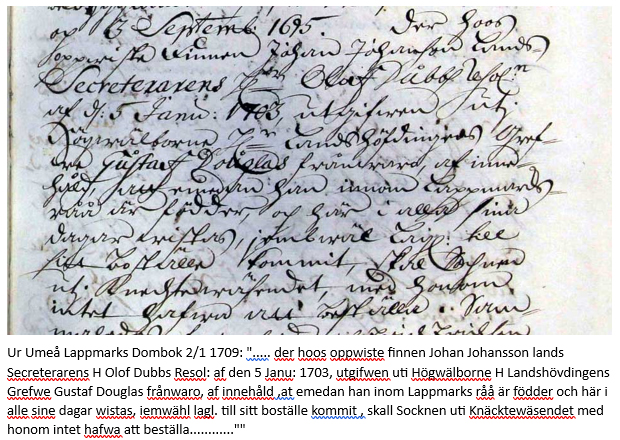 op 6 Septemb: 1695. Der hoos
oppwiste Finnen Johan Johanson Lands-
Secreterarens H Olof Dubbs Resol:n
af d: 5 Janu: 1703, utgifwen uti
Högwälborne H Landshöfdingens Gref-
we Gustaf Douglas frånwaro af inne-
håld, at emedan han innom Lappmarks
råå är födder, och här i alla sina
dagar wistas, jemwäl lagl: till
sitt boställe kommit, skal Sochnen
uti Knechtewäsendet med honom
intet hafwa att beställa. Sam-
Ur Umeå Lappmarks Dombok 2/1 1709: "..... der hoos oppwiste finnen Johan Johansson lands
Secreterarens H Olof Dubbs Resol: af den 5 Janu: 1703, utgifwen uti Högwälborne H Landshövdingens
Grefwe Gustaf Douglas frånwaro, af innehåld ,at emedan han inom Lappmarks råå är födder och här i
alle sine dagar wistas, iemwähl lagl. till sitt boställe kommit , skall Socknen uti Knäcktewäsendet med
honom intet hafwa att beställa............""